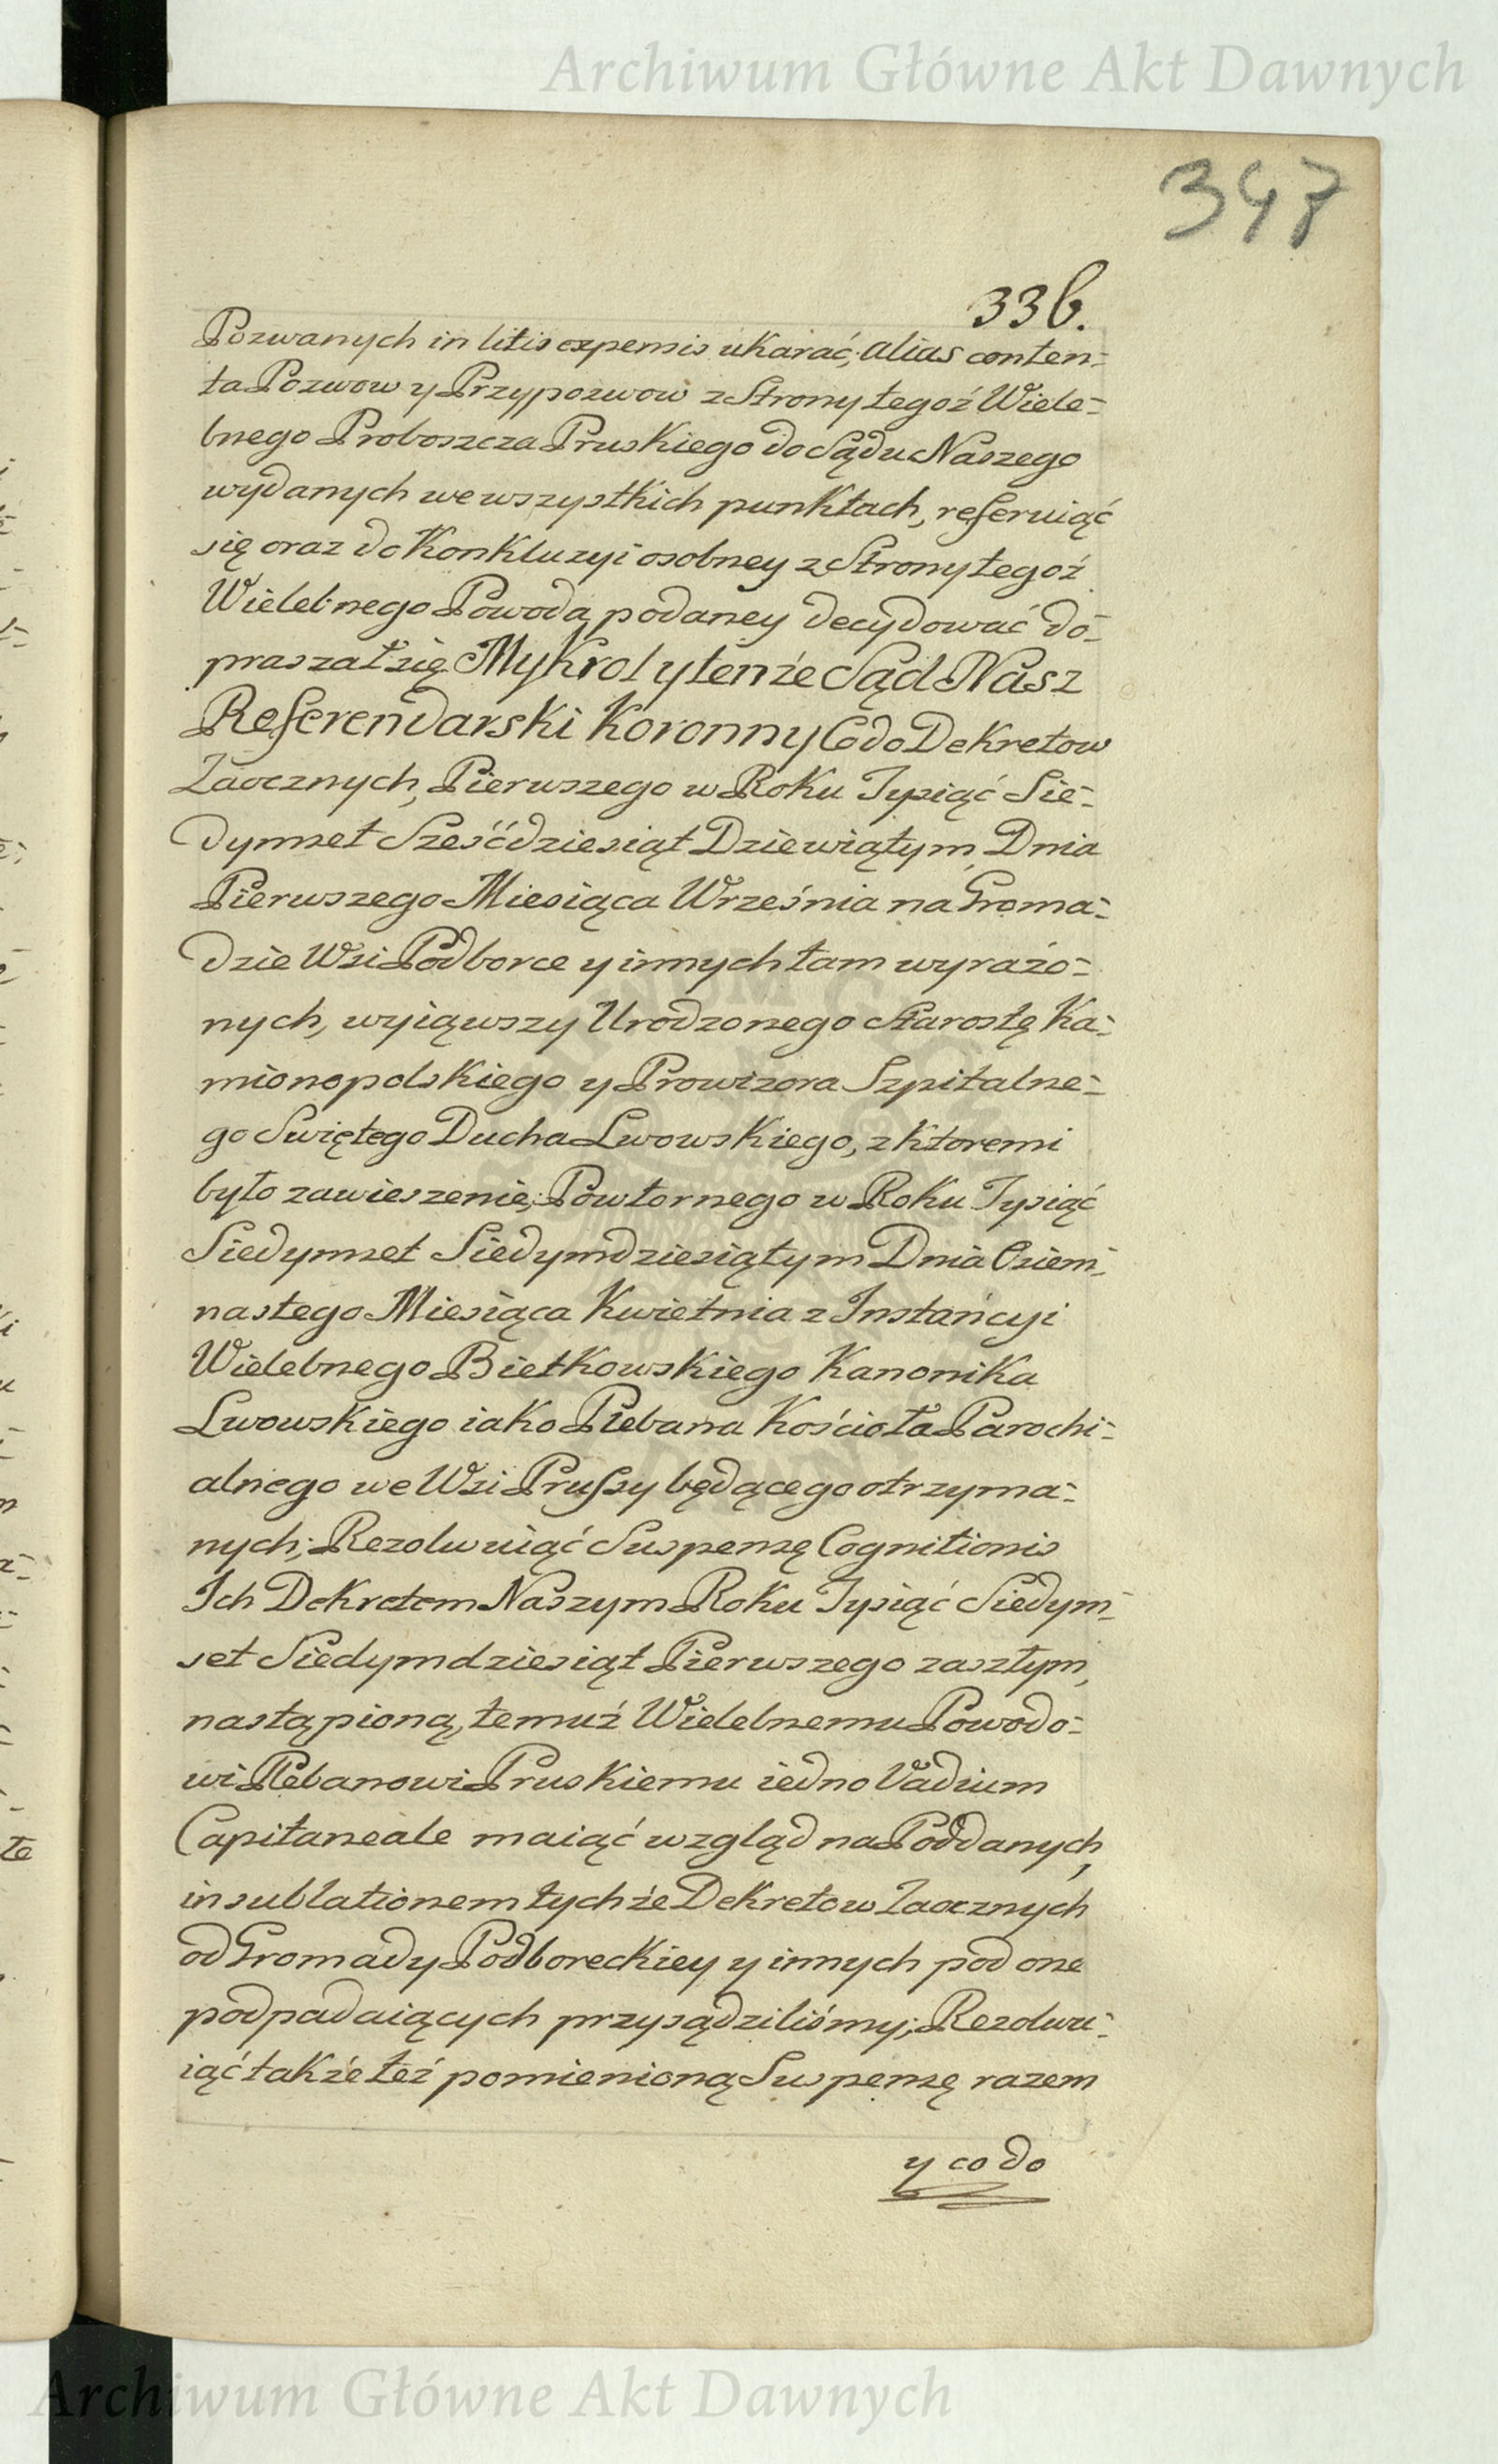 Archiwum Główne Akt Dawnych
347
336.
Pozwanych in litis expensis ukarać; alias conten=
ta Pozwow y Przypozwow z Strony tegoż Wiele=
bnego Proboszcza Pruskiego do Sądu Naszego
wydanych we wszystkich punktach, referuiąć
się oraz do Konkluzyi osobney z Strony tegoż
Wielebnego Powoda podaney decydować do=
praszał się My Krol y tenże Sąd Nasz
Referendarski Koronny Co do Dekretow
Zaocznych, Pierwszego w Roku Tysiąć Sie=
dymset Sześćdziesiąt Dziewiątym Dnia
Pierwszego Miesiąca Września na Groma=
dzie Wsi Podborce y innych tam wyrażo=
nych, wyiąwszy Urodzonego Starostę Ka=
mionopolskiego y Prowizora Szpitalne=
go Swiętego Ducha Lwowskiego, z ktoremi
było zawieszenie; Powtornego w Roku Tysiąć
Siedymset Siedymdziesiątym Dnia Osiem=
nastego Miesiąca Kwietnia z Instańcyi
Wielebnego Bietkowskiego Kanonika
Lwowskiego iako Plebana Kościoła Parochi=
alnego we Wsi Prussy będącego otrzyma=
nych; Rezolwuiąć Suspensę Cognitionis
Ich Dekretem Naszym Roku Tysiąć Siedym=
set Siedymdziesiąt Pierwszego zaszłym,
nastąpioną, temuż Wielebnemu Powodo=
wi Plebanowi Pruskiemu iedno Vadium
Capitaneale maiąć wzgląd na Poddanych,
in sublationem tychże Dekretow Zaocznych
od Gromady Podboreckiey y innych pod one
podpadaiących przysądziliśmy; Rezolwu=
iąć także też pomienioną Suspensę razem
y co do
Archiwum Główne Akt Dawnych